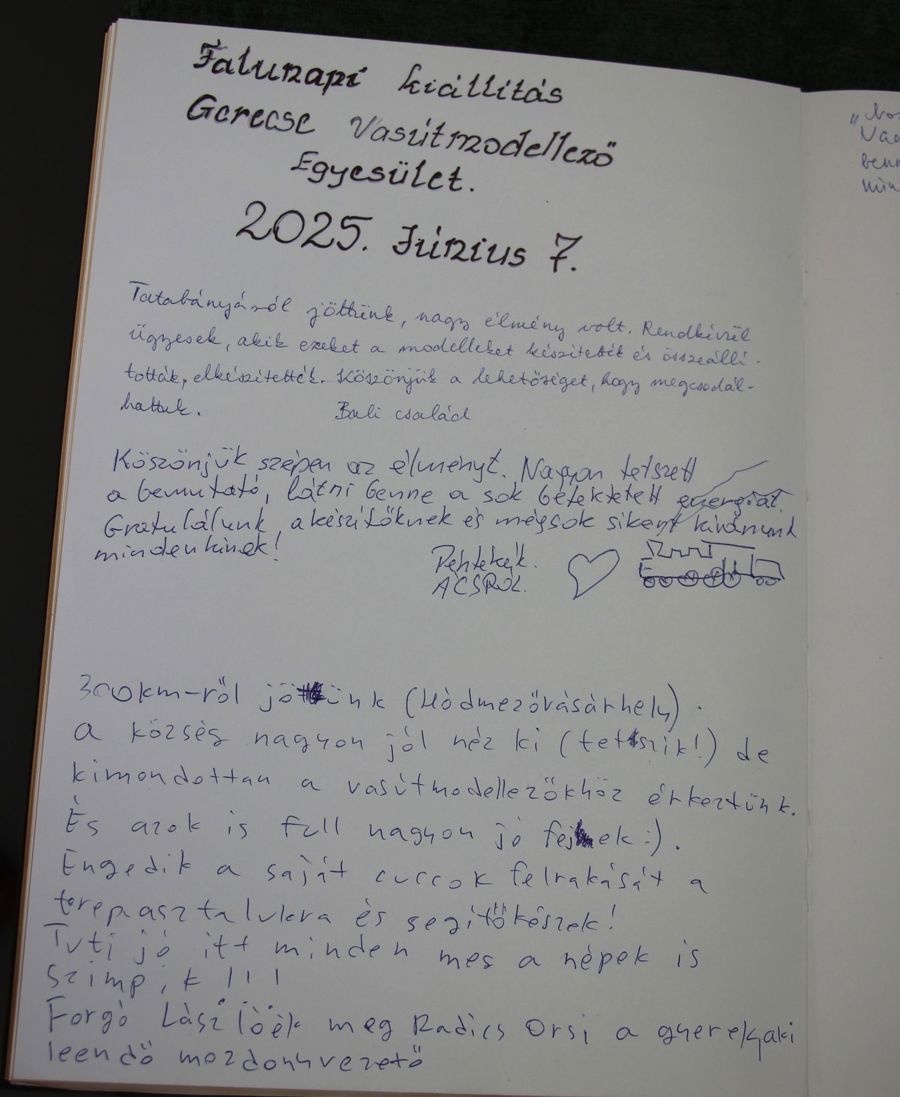 Falunapi kiállítás
Gerecse Vasútmodellező
Egyesület.
2025. Június 7.
Tatabányáról jöttünk, nagy élmény volt. Rendkívül
ügyesek, akik ezeket a modelleket készítették és összeállí-
tották, elkészítették. Köszönjük a lehetőséget, hogy megcsodál-
hattuk.
Bali család
Köszönjük szépen az élményt. Nagyon tetszett
a bemutató, látni benne a sok befektetett energiát.
Gratulálunk a készítőknek és még sok sikert kívánunk
mindenkinek!
ÁCSRÓL.
300km-ről jöttünk (Hódmezővásárhely).
a község nagyon jól néz ki (tetszik!) de
kimondottan a vasútmodellezőkhöz érkeztünk.
És azok is full nagyon jó fejek :).
Engedik a saját cuccok felrakását a
terepasztalukra és segítőkészek!
Tuti jó itt minden meg a népek is
szimpik!!!
Forgó Lászlóék meg Radics Orsi a gyerek, aki
leendő mozdonyvezető